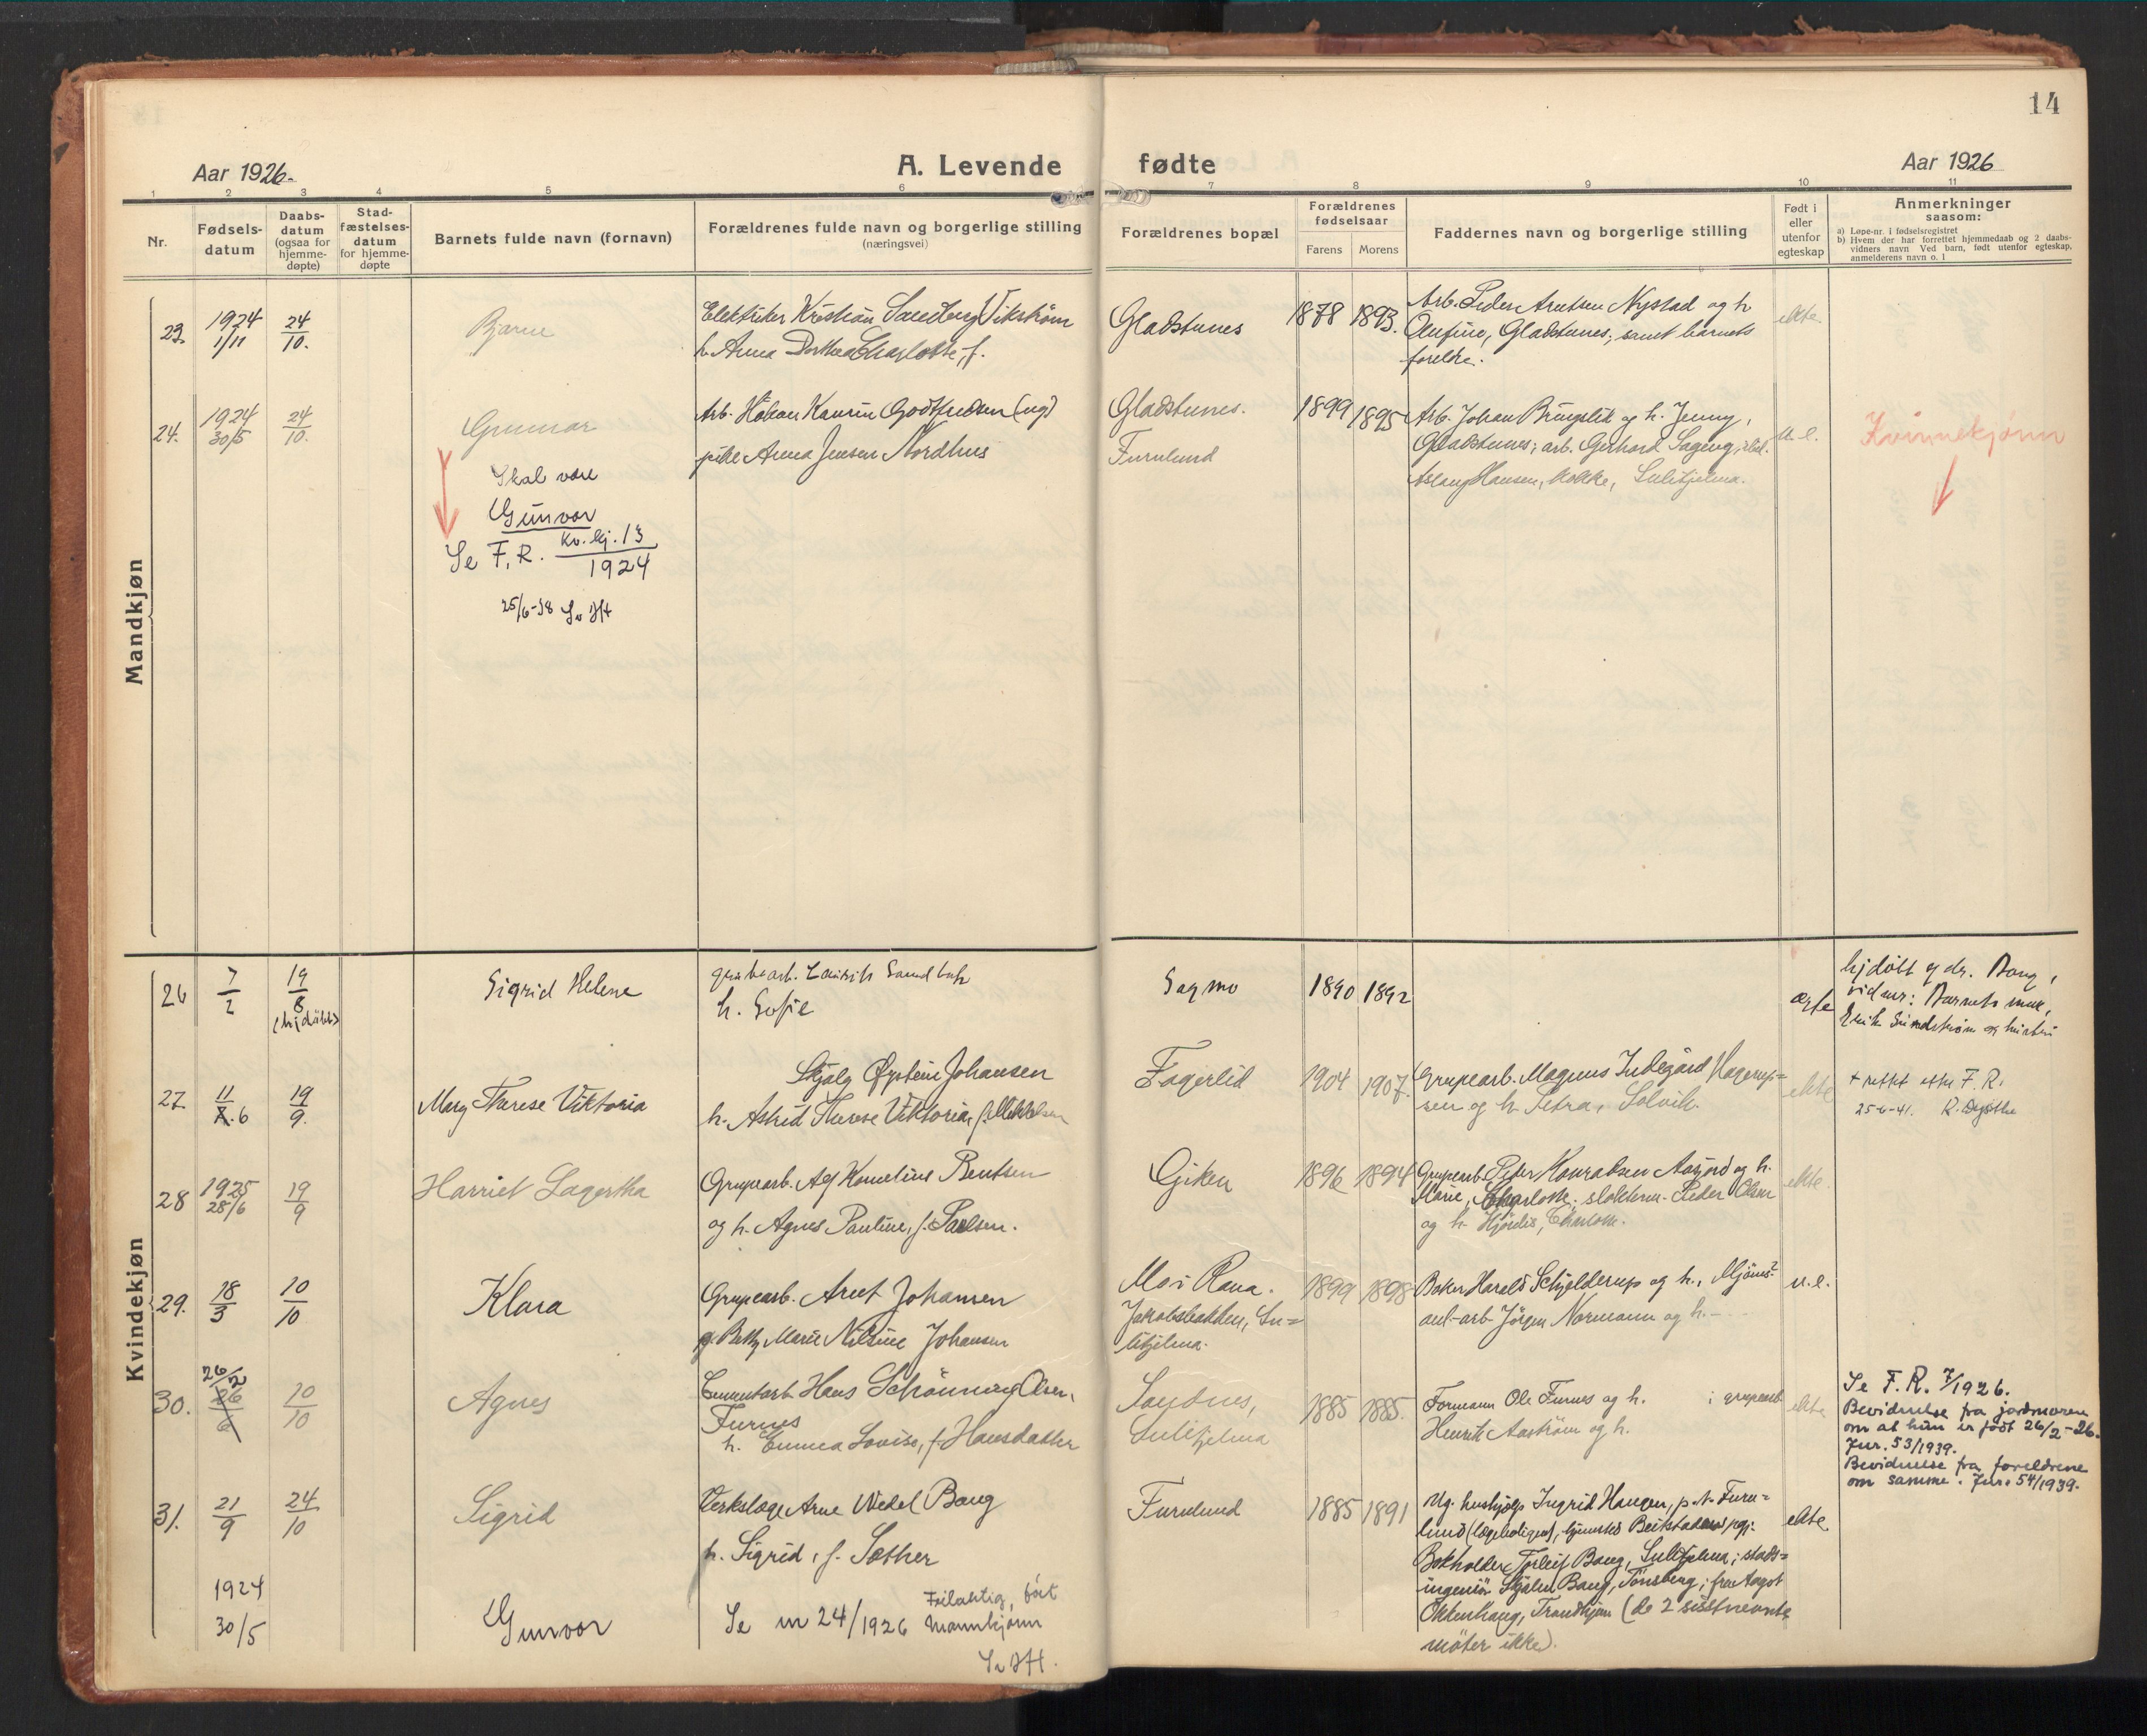 14
Aar 1926.
A. Levende fødte
Aar 1926
1 2 3 4 5 6 7 8 9 10 11
Nr.
Fødsels-
datum
Daabs-
datum
(ogsaa for
hjemme-
døpte)
Stad-
fæstelses-
datum
for hjemme-
døpte
Barnets fulde navn (fornavn)
Forældrenes fulde navn og borgerlige stilling
(næringsvei)
Forældrenes bopæl
Forældrenes
fødselsaar
Farens Morens
Faddernes navn og borgerlige stilling
Født i
eller
utenfor
egteskap
Anmerkninger
saasom:
a) Løpe-nr. i fødselsregistret
b) Hvem der har forrettet hjemmedaab og 2 daabs-
vidners navn Ved barn, født utenfor egteskap,
anmelderens navn o. l
Mandkjøn
23. 1924 1/11 24/10. Bjarne
Elektriker Kristian Sandberg Vikstrøm
h. Anna Dorthea Charlotte, f.
Gladstunes 1878 1893.
Arb. Peder Arntsen Nystad og h.
Olufine, Gladstunes, samt barnets
foreldre.
ekte.
24. 1924 30/5 24/10. Gunnar
Arb. Håkon Godtfredsen (ug)
pike Anna Jensen Nordhus
Gladstunes.
Furulund
1899 1895
Arb. Johan Bringslik og h. Jenny,
Gladstunes; arb. Gerhard
Aslaug Hansen, kokke, Sulitjelma.
u. e.
Kvinnekjønn
Skal være
Gunvor
Se F. R. Kv. kj. 13
1924
25/6-38
Kvindekjøn
26 7/2 19/8 (hjdöbt) Sigrid Helene
grubearb. Lauritz Sandbak
h. Sofie
Sagmo 1890 1892
ægte
hjdöbt af dr. Bang,
vidner: Barnets mor,
Erik Sundstrøm og hustru
27. 11/7. 6 19/9. Mary Therese Viktoria
Skjalg Øystein Johansen
h. Astrid Therese Viktoria, f. Mikkelsen
Fagerlid 1904 1907.
Grupearb. Magnus Indegård Hagerup=
sen og h. Petra, Solvik.
ekte
+ rettet etter F. R.
25-6-41.
28 1925 28/6 19/9 Harriet Lagertha
Grupearb. Alf Kornelius Bentsen
og h. Agnes Pauline, f. Paulsen.
Giken 1896 1894
Grupearb. Peter Konradsen Aasjord og h.
Marie, Charlotte; Peder Olsen
og h. Hjørdis, Charlotte.
ekte.
29. 18/3 10/10 Klara
Grupearb. Arnt Johansen
p. Betty Marie Nilsine Johansen
Mo i Rana.
Jakobsbakken, Su=
litjelma.
1899 1898
Baker Harald Schjelderup og h.,
anl.-arb. Jörgen Normann og h.
u. e.
30. 26/2 26/6 10/10 Agnes
Cementarb. Hans Schönning Olsen,
Furnes
h. Emma Lovise, f. Hansdatter
Sandnes,
Sulitjelma
1885 1885.
Formann Ole Furnes og h. ; grupearb.
Henrik Aaström og h.
ekte
Se F. R. 7/1926.
Bevidnelse fra jordmoren
om at hun er født 26/2-26.
Jnr. 53/1939.
Bevidnelse fra foreldrene
om samme. Jnr. 54/1939.
31. 21/9 24/10 Sigrid
Verkslæge Arne Wedel Bang
h. Sigrid, f. Sæther
Furulund 1885 1891
Ug. hushjelp Ingrid Haugen, p. t. Furu=
lund (lægeboligen), hjemsted Beitstaden;
Bokholder Torleif Bang, Sulitjelma; stads=
ingeniör Bang, Tönsberg; fru Aagot
Trondhjem (de 2 sistnevnte
möter ikke).
ekte.
1924
30/5 Gunvor
Se nr 24/1926 Feilaktig ført
mannkjønn